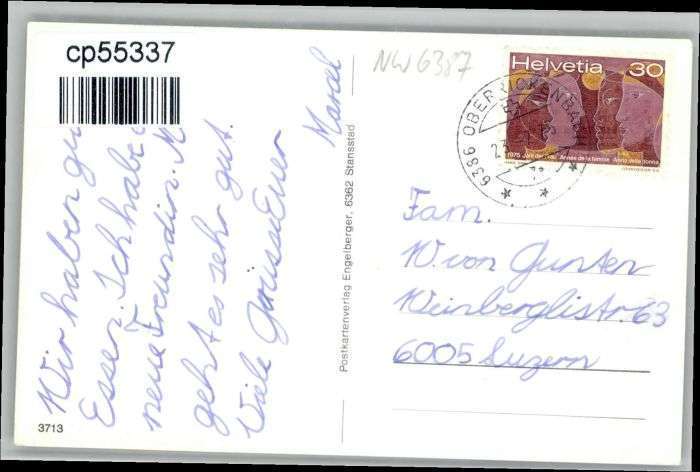 cp55337
NW6387
Helvetia 30
6386 OBERRICKENBACH
23.
1975 Jahr der Frau Année de la femme Anno della donna
Wir haben gu
Essen. Ich habe
neue Freundin. M
geht es sehr gut.
Viele Grüsse Euer
Marcel
Postkartenverlag Engelberger, 6362 Stansstad
Fam.
W. von Gunten
Weinberglistr. 63
6005 Luzern
3713